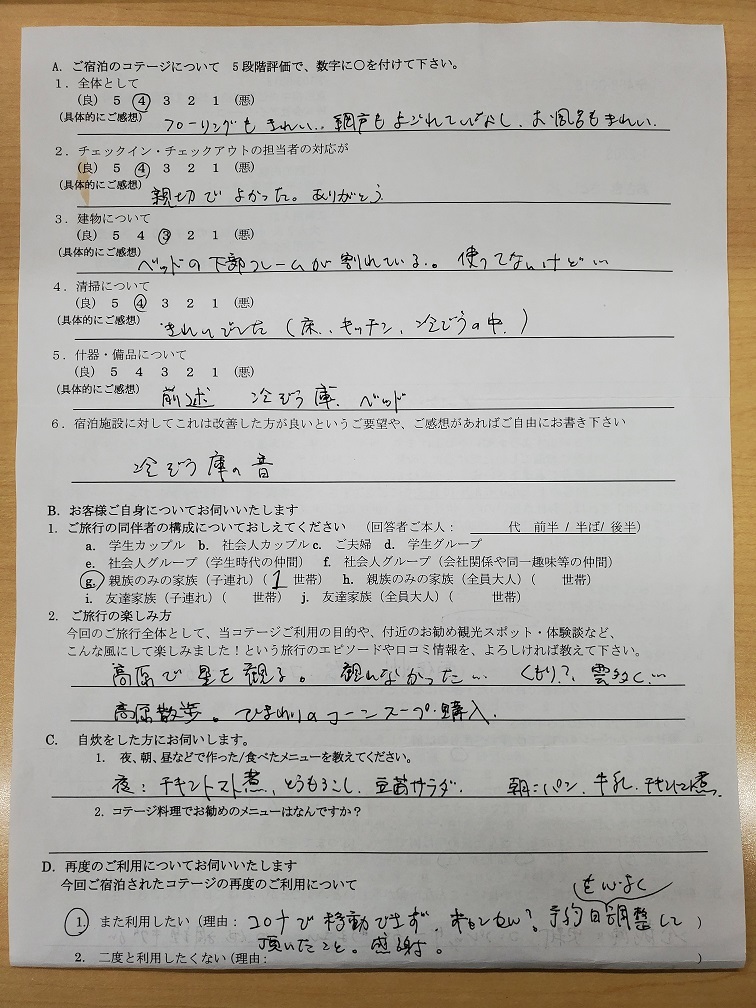 A. ご宿泊のコテージについて　5段階評価で、数字に○を付けて下さい。
1. 全体として
(良) 5 4 3 2 1 (悪)
(具体的にご感想) フローリングもきれい.. 網戸もよごれていなし、お風呂もきれい.
2. チェックイン・チェックアウトの担当者の対応が
(良) 5 4 3 2 1 (悪)
(具体的にご感想) 親切でよかった。ありがとう
3. 建物について
(良) 5 4 3 2 1 (悪)
(具体的にご感想) ベッドの下部フレームが割れている.。使ってないけど…
4. 清掃について
(良) 5 4 3 2 1 (悪)
(具体的にご感想) きれいでした (床、キッチン、冷ぞうの中.)
5. 什器・備品について
(良) 5 4 3 2 1 (悪)
(具体的にご感想) 前述　冷ぞう庫、ベッド
6. 宿泊施設に対してこれは改善した方が良いというご要望や、ご感想があればご自由にお書き下さい
冷ぞう庫の音
B. お客様ご自身についてお伺いいたします
1. ご旅行の同伴者の構成についておしえてください　(回答者ご本人：　　　代　前半 / 半ば/ 後半)
a. 学生カップル　b. 社会人カップル c. ご夫婦　d. 学生グループ
e. 社会人グループ (学生時代の仲間)　f. 社会人グループ (会社関係や同一趣味等の仲間)
g. 親族のみの家族 (子連れ) ( 1 世帯)　h. 親族のみの家族 (全員大人) (　　世帯)
i. 友達家族 (子連れ) (　　世帯)　j. 友達家族 (全員大人) (　　世帯)
2. ご旅行の楽しみ方
今回のご旅行全体として、当コテージご利用の目的や、付近のお勧め観光スポット・体験談など、
こんな風にして楽しみました！という旅行のエピソードや口コミ情報を、よろしければ教えて下さい。
高原で星を観る。観れなかった… くもり？、雲多く…
高原散歩。ひまわりのコーンスープ購入.
C. 自炊をした方にお伺いします。
1. 夜、朝、昼などで作った/食べたメニューを教えてください。
夜：チキントマト煮、とうもろこし、豆苗サラダ.　朝：パン、牛乳、チキントマト煮
2. コテージ料理でお勧めのメニューはなんですか？
D. 再度のご利用についてお伺いいたします
今回ご宿泊されたコテージの再度のご利用について
1. また利用したい (理由：コロナで移動できず、キャンセル？、予約日調整して )
頂いたこと。感謝。
2. 二度と利用したくない (理由：　　)